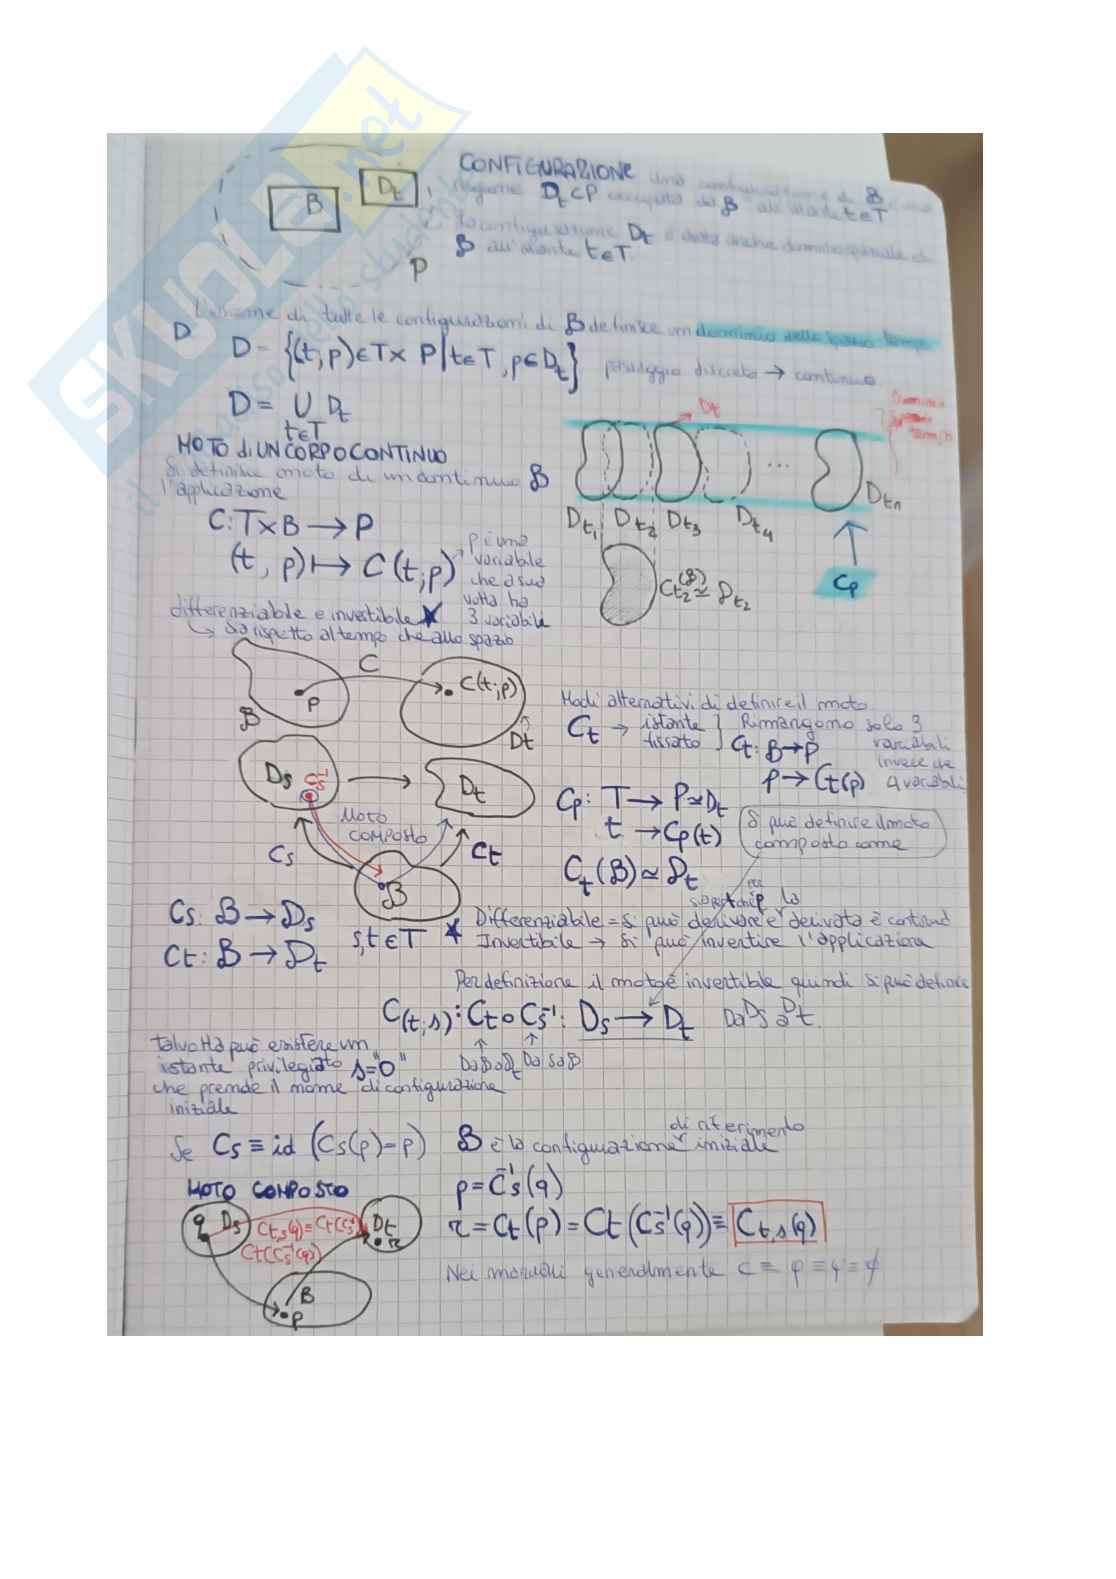 SKUOLA.net
CONFIGURAZIONE una configurazione di B è una
regione Dt⊂P occupata da B all'istante t∈T
la configurazione Dt è detta anche dominio spaziale di
B all'istante t∈T.
B
Dt
P
L'insieme di tutte le configurazioni di B definisce un dominio dello spazio tempo
D
D = {(t,p)∈T×P | t∈T, p∈Dt}
passaggio discreto → continuo
D = ∪ Dt
t∈T
Dt
Dominio
spazio
tempo
MOTO di UN CORPO CONTINUO
Si definisce moto di un continuo B
l'applicazione
...
Dt1 Dt2 Dt3 Dt4 Dtn
C: T×B → P
(t, p) ↦ C(t;p)
p è una
variabile
che a sua
volta ha
3 variabile
Ct2(B) ≃ Dt2
Cp
differenziabile e invertibile ★
↳ sa rispetto al tempo che allo spazio
C
p
C(t;p)
B
Dt
Modi alternativi di definire il moto
Ct → istante fissato } Rimangono solo 3
variabili
invece che
4 variabili
Ct: B→P
p → Ct(p)
Ds
Cs⁻¹
Dt
MOTO
COMPOSTO
Cs
Ct
B
Cp: T → P≃Dt
t → Cp(t)
Si può definire il moto
composto come
Ct(B) ≃ Dt
Cs: B → Ds
Ct: B → Dt
s,t ∈ T
★ Differenziabile = Si può derivare e la derivata è continua
Invertibile → Si può invertire l'applicazione
Per definizione il moto è invertibile quindi si può definire
C(t,s): Ct∘Cs⁻¹: Ds → Dt Da Ds a Dt.
Da B a Dt Da S a B
talvolta può esistere un
istante privilegiato s="0"
che prende il nome di configurazione
iniziale
Se Cs ≡ id (Cs(p)=p) B è la configurazione di riferimento iniziale
MOTO COMPOSTO
p = Cs⁻¹(q)
r = Ct(p) = Ct(Cs⁻¹(q)) ≡ Ct,s(q)
q Ds
Ct,s(q)=Ct(Cs⁻¹
Ct(Cs⁻¹(q))
Dt
r
B
p
Nei manuali generalmente C ≡ φ ≡ ψ ≡ ϕ